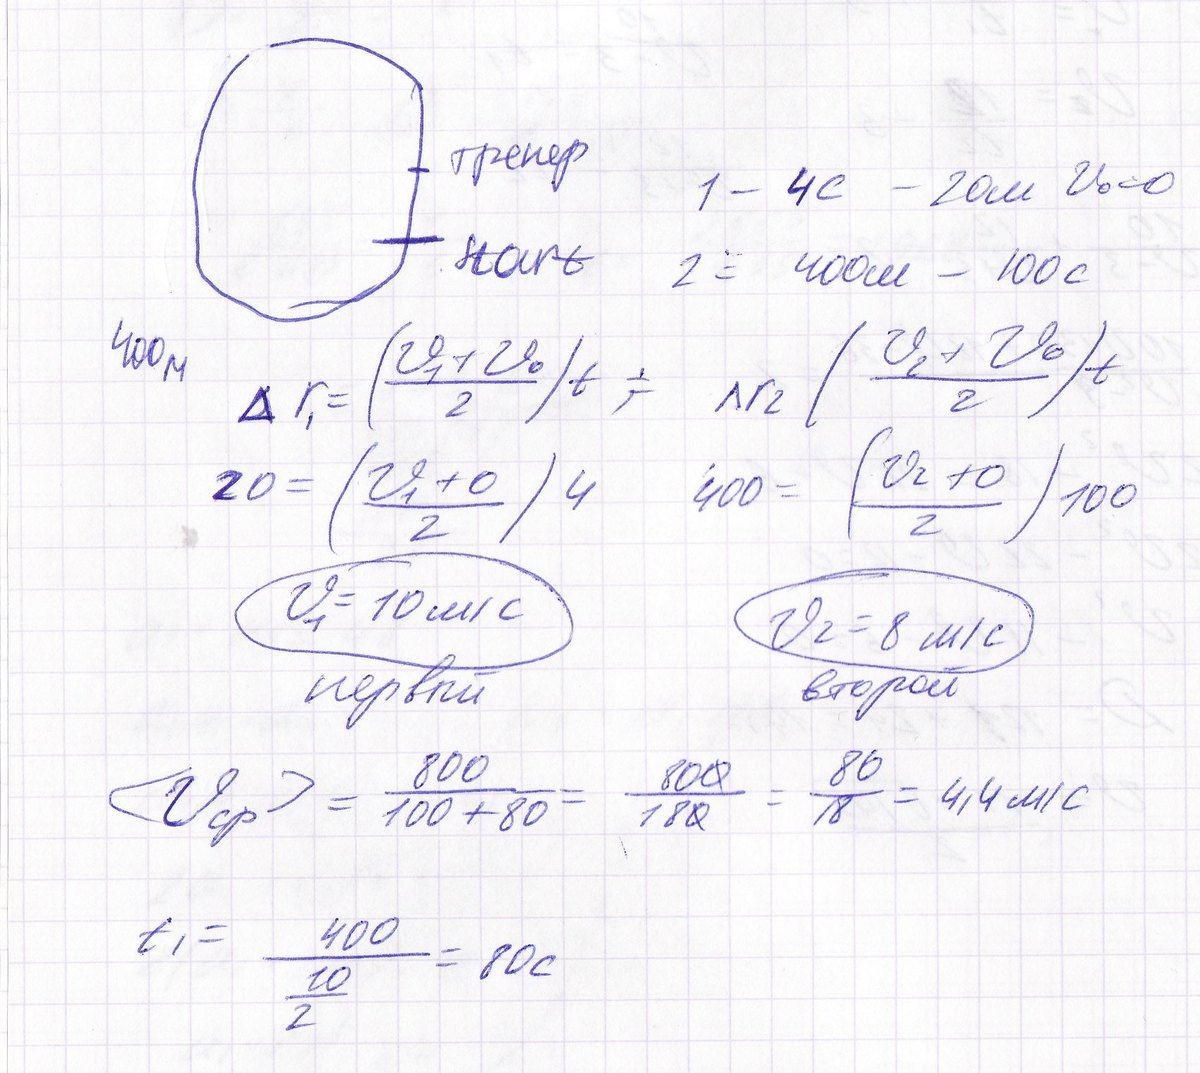 тренер
start
1 – 4с – 20м V₀=0
2 = 400м – 100с
400м
Δr₁ = (V₁+V₀ / 2) t ; Δr₂ (V₂+V₀ / 2) t
20 = (V₁+0 / 2) 4 400 = (V₂+0 / 2) 100
V₁ = 10 м/с V₂ = 8 м/с
первый второй
<Vср> = 800 / 100+80 = 800 / 180 = 80 / 18 = 4,4 м/с
t₁ = 400 / (10 / 2) = 80с